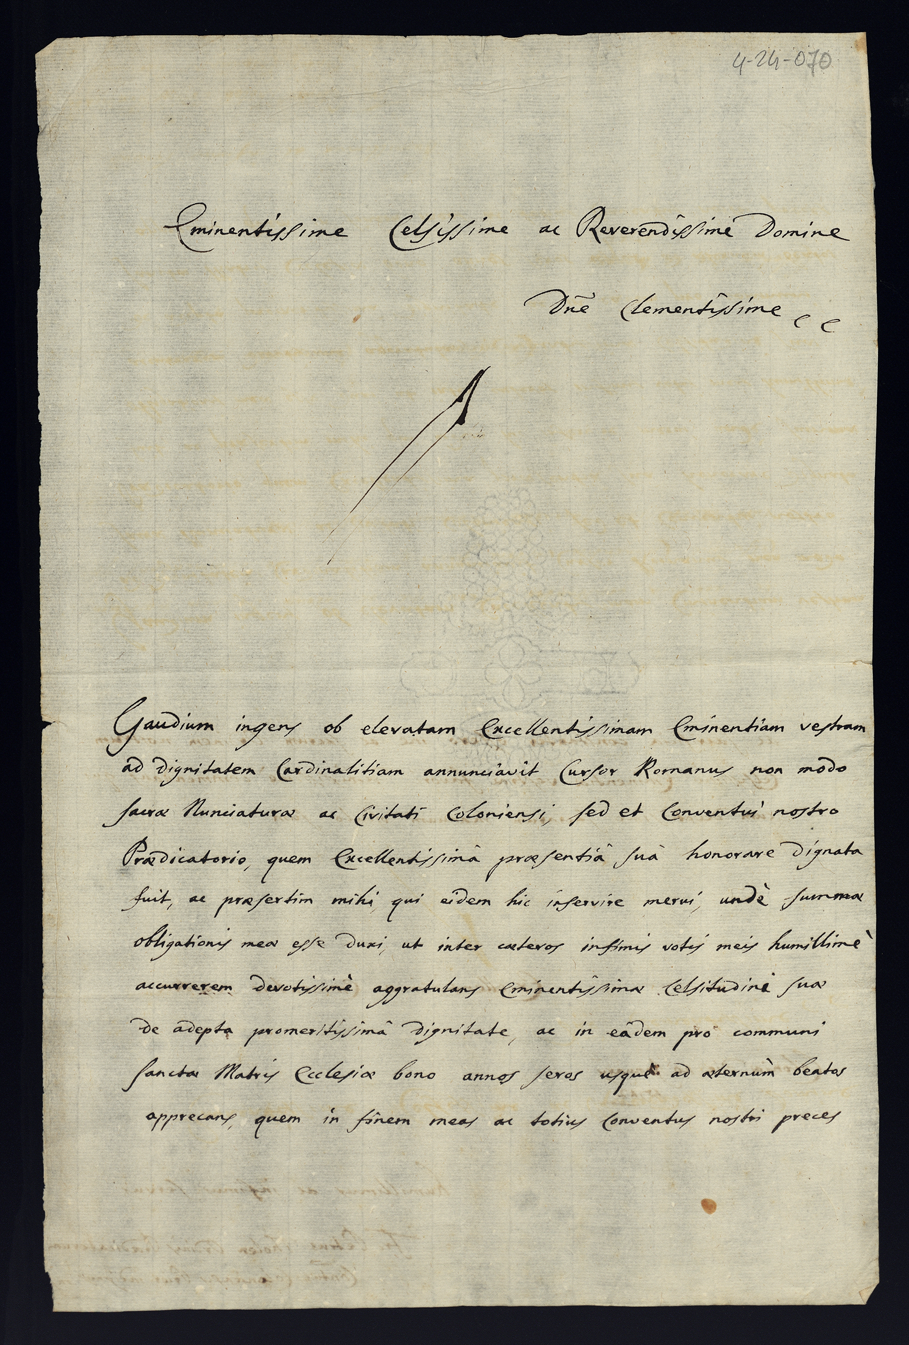 4-24-070
Eminentissime Celsissime ac Reverendissime Domine
Dn̄e Clementissime
Gaudium ingens ob elevatam Excellentissimam Eminentiam vestram
ad dignitatem Cardinalitiam annunciavit Cursor Romanus non modo
sacræ Nunciaturæ ac Civitati Coloniensi, sed et Conventui nostro
Prædicatorio, quem Excellentissimâ præsentiâ suâ honorare dignata
fuit, ac præsertim mihi, qui eidem hic inservire merui, undè summæ
obligationis meæ esse duxi, ut inter cæteros infimis votis meis humillimè
accurrerem devotissimè aggratulans Eminentissimæ Celsitudini suæ
de adepta promeritissimâ dignitate, ac in eâdem pro communi
sanctæ Matris Ecclesiæ bono annos seros usquè ad æternùm beatos
apprecans, quem in finem meas ac totius Conventus nostri preces